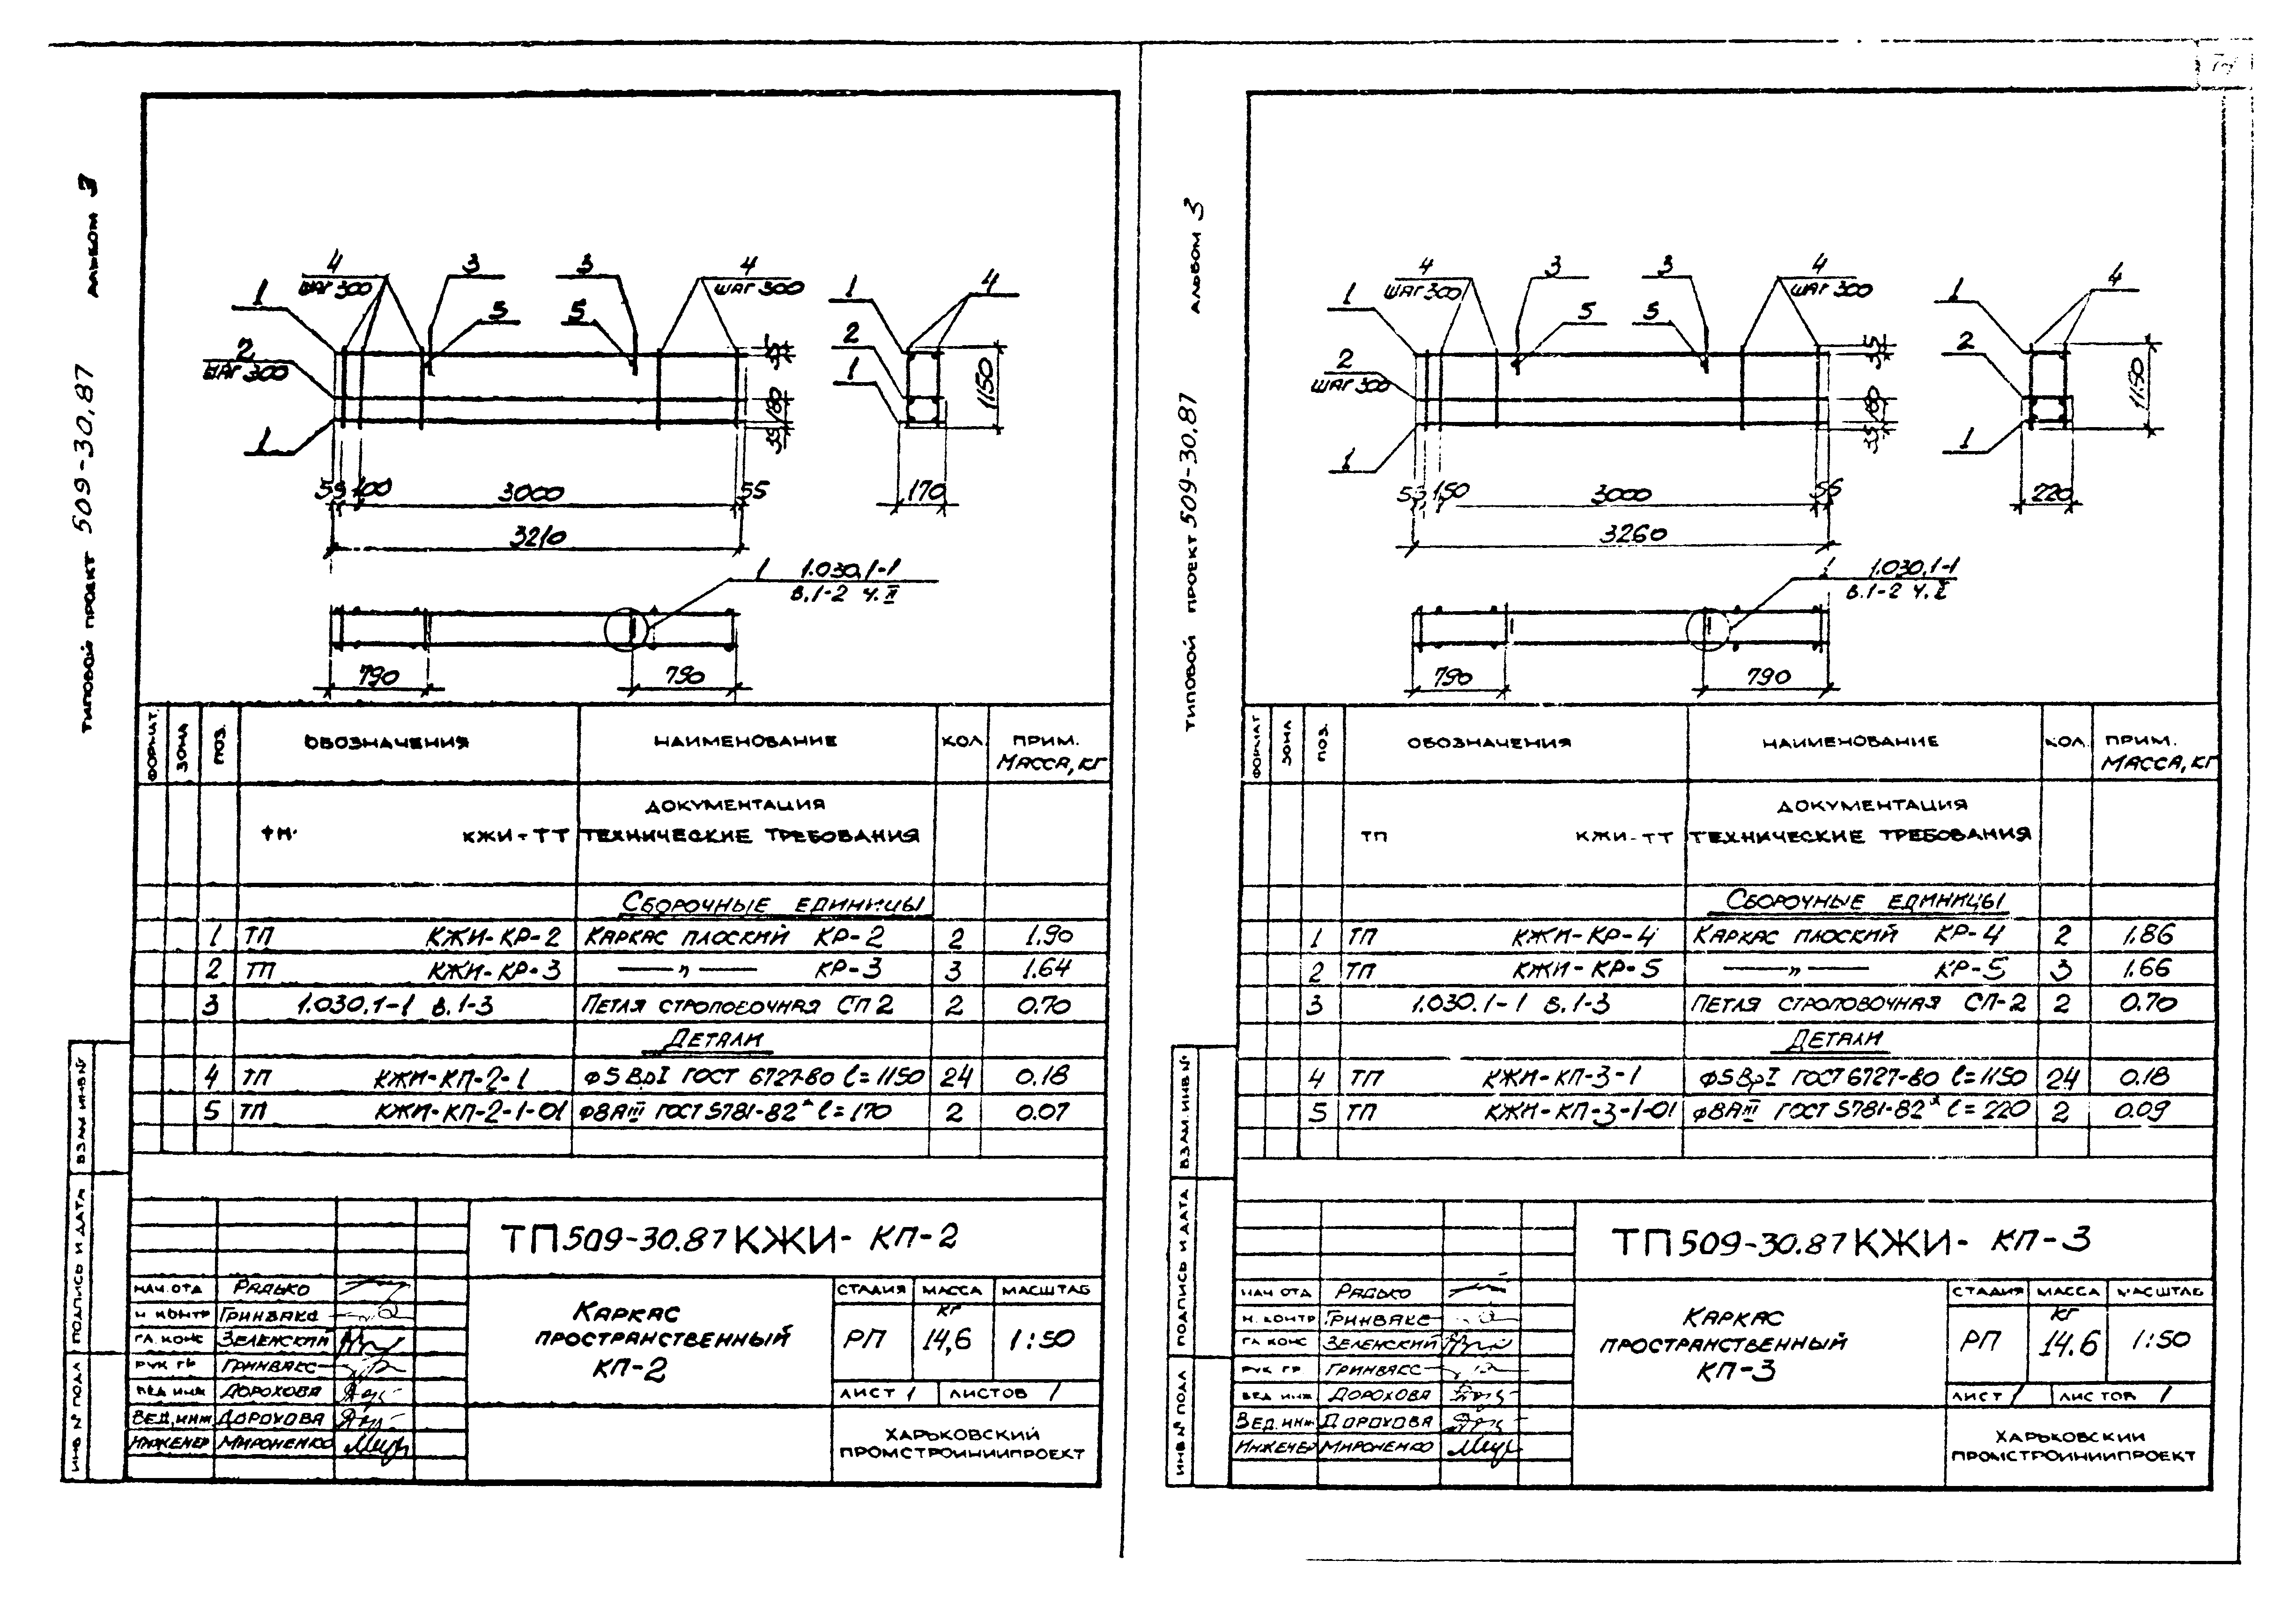 АЛЬБОМ 3
ТИПОВОЙ ПРОЕКТ 509-30.87
4
ШАГ 300
3
3
4
ШАГ 300
1
5
5
2
ШАГ 300
1
35
180
35
55 100 3000 55
3210
1
2
1
4
1150
170
1 1.030.1-1
В.1-2 Ч.II
790 790
ФОРМАТ. ЗОНА ПОЗ. ОБОЗНАЧЕНИЯ НАИМЕНОВАНИЕ КОЛ ПРИМ.
МАССА, КГ
ДОКУМЕНТАЦИЯ
КЖИ-ТТ ТЕХНИЧЕСКИЕ ТРЕБОВАНИЯ
СБОРОЧНЫЕ ЕДИНИЦЫ
1 ТП КЖИ-КР-2 КАРКАС ПЛОСКИЙ КР-2 2 1.90
2 ТП КЖИ-КР-3 —— „ —— КР-3 3 1.64
3 1.030.1-1 В.1-3 ПЕТЛЯ СТРОПОВОЧНАЯ СП2 2 0.70
ДЕТАЛИ
4 ТП КЖИ-КП-2-1 ф5ВрI ГОСТ 6727-80 ℓ=1150 24 0.18
5 ТП КЖИ-КП-2-1-01 ф8АIII ГОСТ 5781-82* ℓ=170 2 0.07
ВЗАМ ИНВ №
ПОДПИСЬ И ДАТА
ИНВ № ПОДЛ
ТП 509-30.87 КЖИ- КП-2
НАЧ. ОТД РАДЬКО
Н. КОНТР ГРИНВАКС
ГЛ. КОНС ЗЕЛЕНСКИЙ
РУК ГР ГРИНВАКС
ВЕД ИНЖ ДОРОХОВА
ВЕД. ИНЖ ДОРОХОВА
ИНЖЕНЕР МИРОНЕНКО
КАРКАС
ПРОСТРАНСТВЕННЫЙ
КП-2
СТАДИЯ МАССА МАСШТАБ
КГ
РП 14,6 1:50
ЛИСТ 1 ЛИСТОВ 1
ХАРЬКОВСКИЙ
ПРОМСТРОЙНИИПРОЕКТ
АЛЬБОМ 3
ТИПОВОЙ ПРОЕКТ 509-30.87
4
ШАГ 300
3
3
4
ШАГ 300
1
5
5
2
ШАГ 300
1
35
180
35
55 150 3000 55
3260
1
2
1
4
1150
220
1 1.030.1-1
В.1-2 Ч.II
790 790
ФОРМАТ ЗОНА ПОЗ. ОБОЗНАЧЕНИЯ НАИМЕНОВАНИЕ КОЛ. ПРИМ.
МАССА, КГ
ДОКУМЕНТАЦИЯ
ТП КЖИ-ТТ ТЕХНИЧЕСКИЕ ТРЕБОВАНИЯ
СБОРОЧНЫЕ ЕДИНИЦЫ
1 ТП КЖИ-КР-4 КАРКАС ПЛОСКИЙ КР-4 2 1.86
2 ТП КЖИ-КР-5 —— „ —— КР-5 3 1.66
3 1.030.1-1 В.1-3 ПЕТЛЯ СТРОПОВОЧНАЯ СП-2 2 0.70
ДЕТАЛИ
4 ТП КЖИ-КП-3-1 ф5ВрI ГОСТ 6727-80 ℓ=1150 24 0.18
5 ТП КЖИ-КП-3-1-01 ф8АIII ГОСТ 5781-82* ℓ=220 2 0.09
ВЗАМ. ИНВ №
ПОДПИСЬ И ДАТА
ИНВ № ПОДЛ
ТП 509-30.87 КЖИ- КП-3
НАЧ ОТД РАДЬКО
Н. КОНТР ГРИНВАКС
ГЛ КОНС ЗЕЛЕНСКИЙ
РУК ГР ГРИНВАКС
ВЕД ИНЖ ДОРОХОВА
ВЕД. ИНЖ ДОРОХОВА
ИНЖЕНЕР МИРОНЕНКО
КАРКАС
ПРОСТРАНСТВЕННЫЙ
КП-3
СТАДИЯ МАССА МАСШТАБ
КГ
РП 14.6 1:50
ЛИСТ 1 ЛИСТОВ 1
ХАРЬКОВСКИЙ
ПРОМСТРОЙНИИПРОЕКТ